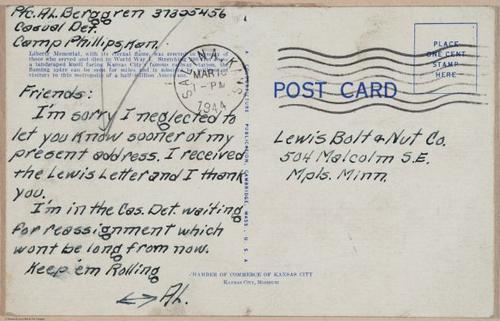 Pfc. AL. Berggren 37325456
Casual Det.
Camp Phillips Kan.
Liberty Memorial, with its eternal flame, was erected
those who served and died in World War I.
a landscaped knoll facing Kansas City's famous
flaming spire can be seen for miles and is
visitors to this metropolis of a half-million
Friends:
I'm sorry I neglected to
let you know sooner of my
present address. I received
the Lewis Letter and I thank
you.
I'm in the Cas. Det. waiting
for reassignment which
wont be long from now.
Keep 'em Rolling
AL.
CHAMBER OF COMMERCE OF KANSAS CITY
KANSAS CITY, MISSOURI
PUBLICATION, CAMBRIDGE, MASS., U. S. A.
SALINA, KANS.
MAR
1-PM
1944
PLACE
ONE CENT
STAMP
HERE
POST CARD
Lewis Bolt & Nut Co.
504 Malcolm S.E.
Mpls. Minn.